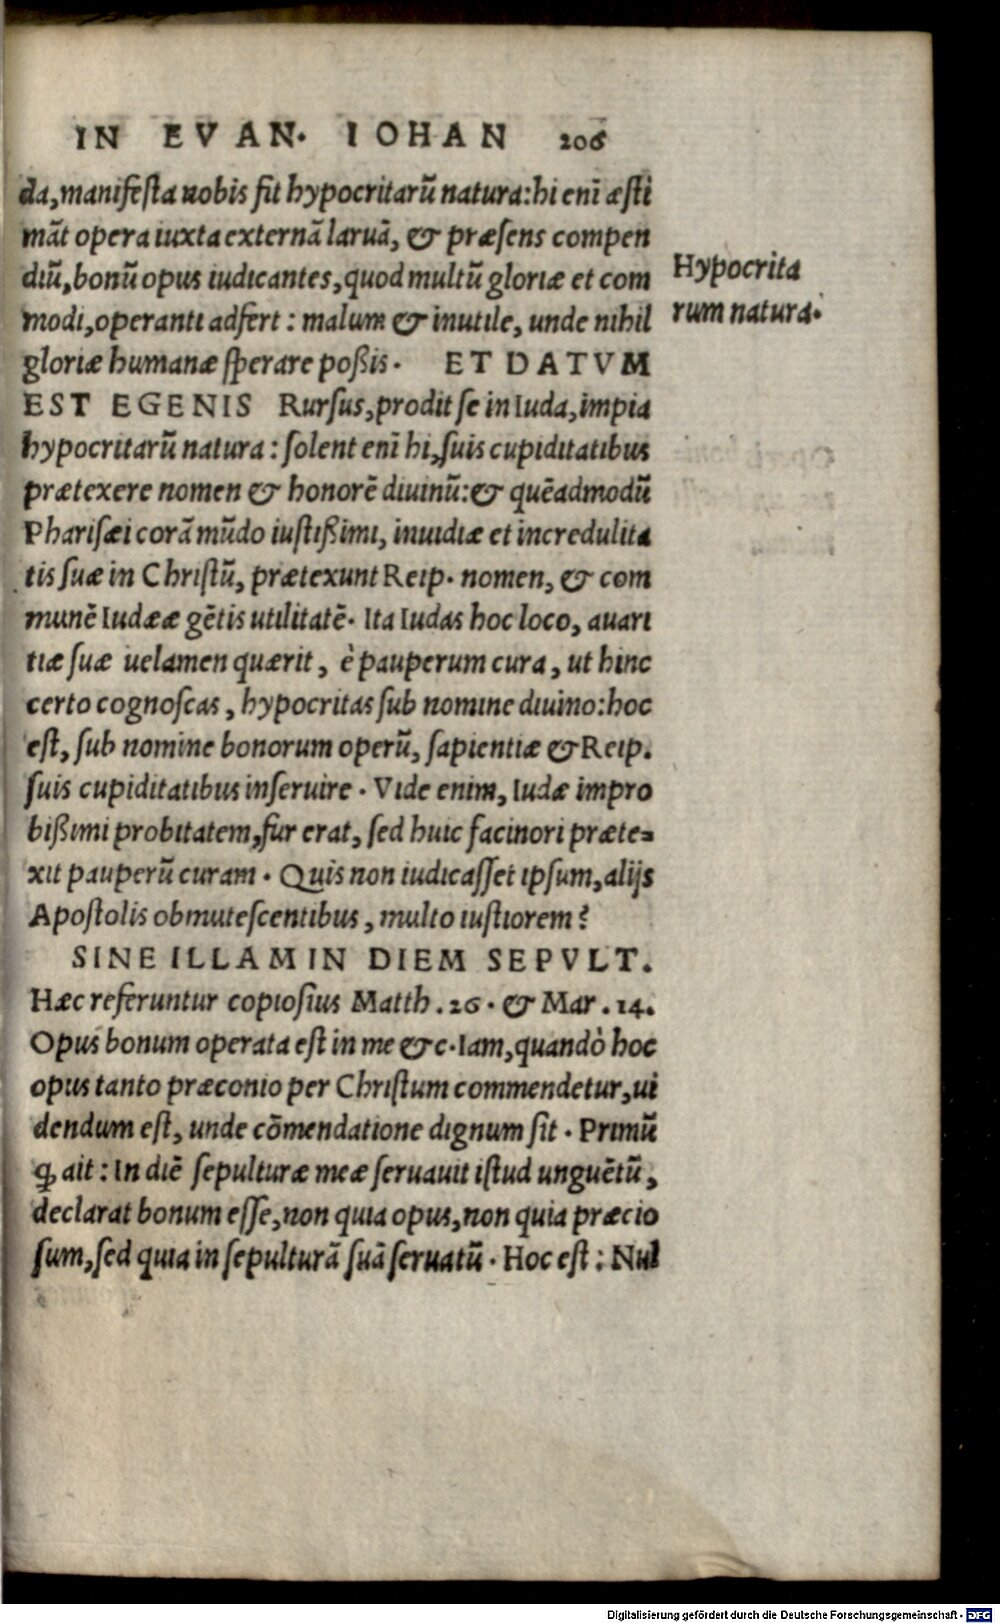 IN EVAN. IOHAN 206
da, manifesta uobis fit hypocritarũ natura: hi enĩ æsti
mãt opera iuxta externã laruã, & præsens compen
diũ, bonũ opus iudicantes, quod multũ gloriæ et com
modi, operanti adfert: malum & inutile, unde nihil
gloriæ humanæ sperare poßis. ET DATVM
EST EGENIS Rursus, prodit se in Iuda, impia
hypocritarũ natura: solent enĩ hi, suis cupiditatibus
prætexere nomen & honorẽ diuinũ: & quẽadmodũ
Pharisæi corã mũdo iustißimi, inuidiæ et incredulita
tis suæ in Christũ, prætexunt Reip. nomen, & com
munẽ Iudææ gẽtis utilitatẽ. Ita Iudas hoc loco, auari
tiæ suæ uelamen quærit, è pauperum cura, ut hinc
certo cognoscas, hypocritas sub nomine diuino: hoc
est, sub nomine bonorum operũ, sapientiæ & Reip.
suis cupiditatibus inseruire. Vide enim, Iudæ impro
bißimi probitatem, fur erat, sed huic facinori præte=
xit pauperũ curam. Quis non iudicasset ipsum, alijs
Apostolis obmutescentibus, multo iustiorem?
SINE ILLAM IN DIEM SEPVLT.
Hæc referuntur copiosius Matth. 26. & Mar. 14.
Opus bonum operata est in me &c. Iam, quandò hoc
opus tanto præconio per Christum commendetur, ui
dendum est, unde cõmendatione dignum sit. Primũ
ꝙ ait: In diẽ sepulturæ meæ seruauit istud unguẽtũ,
declarat bonum esse, non quia opus, non quia præcio
sum, sed quia in sepulturã suã seruatũ. Hoc est: Nul
Hypocrita
rum natura.
Digitalisierung gefördert durch die Deutsche Forschungsgemeinschaft - DFG